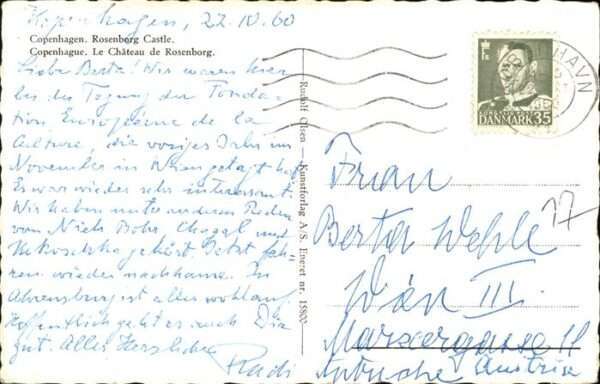 Kopenhagen, 22.IV.60
Copenhagen. Rosenborg Castle.
Copenhague. Le Château de Rosenborg.
Liebe Berta! Wir waren hier
bei der Tagung der Fonda-
tion Européenne de la
Culture, die voriges Jahr im
November in Wien getagt hat.
Es war wieder sehr interessant.
Wir haben unter anderem Reden
von Niels Bohr, Chagal und
Kokoschka gehört. Jetzt fah-
ren wieder nachhause. In
Ahrensburg ist alles wohlauf.
Hoffentlich geht es auch Dir
gut. Alles Herzliche
Rudi
Rudolf Olsen - Kunstforlag A/S. Eneret nr. 15800
HAVN
DANMARK 35
Frau
Berta Wehle
17
Wien III.
Marxergasse
Autriche Austria